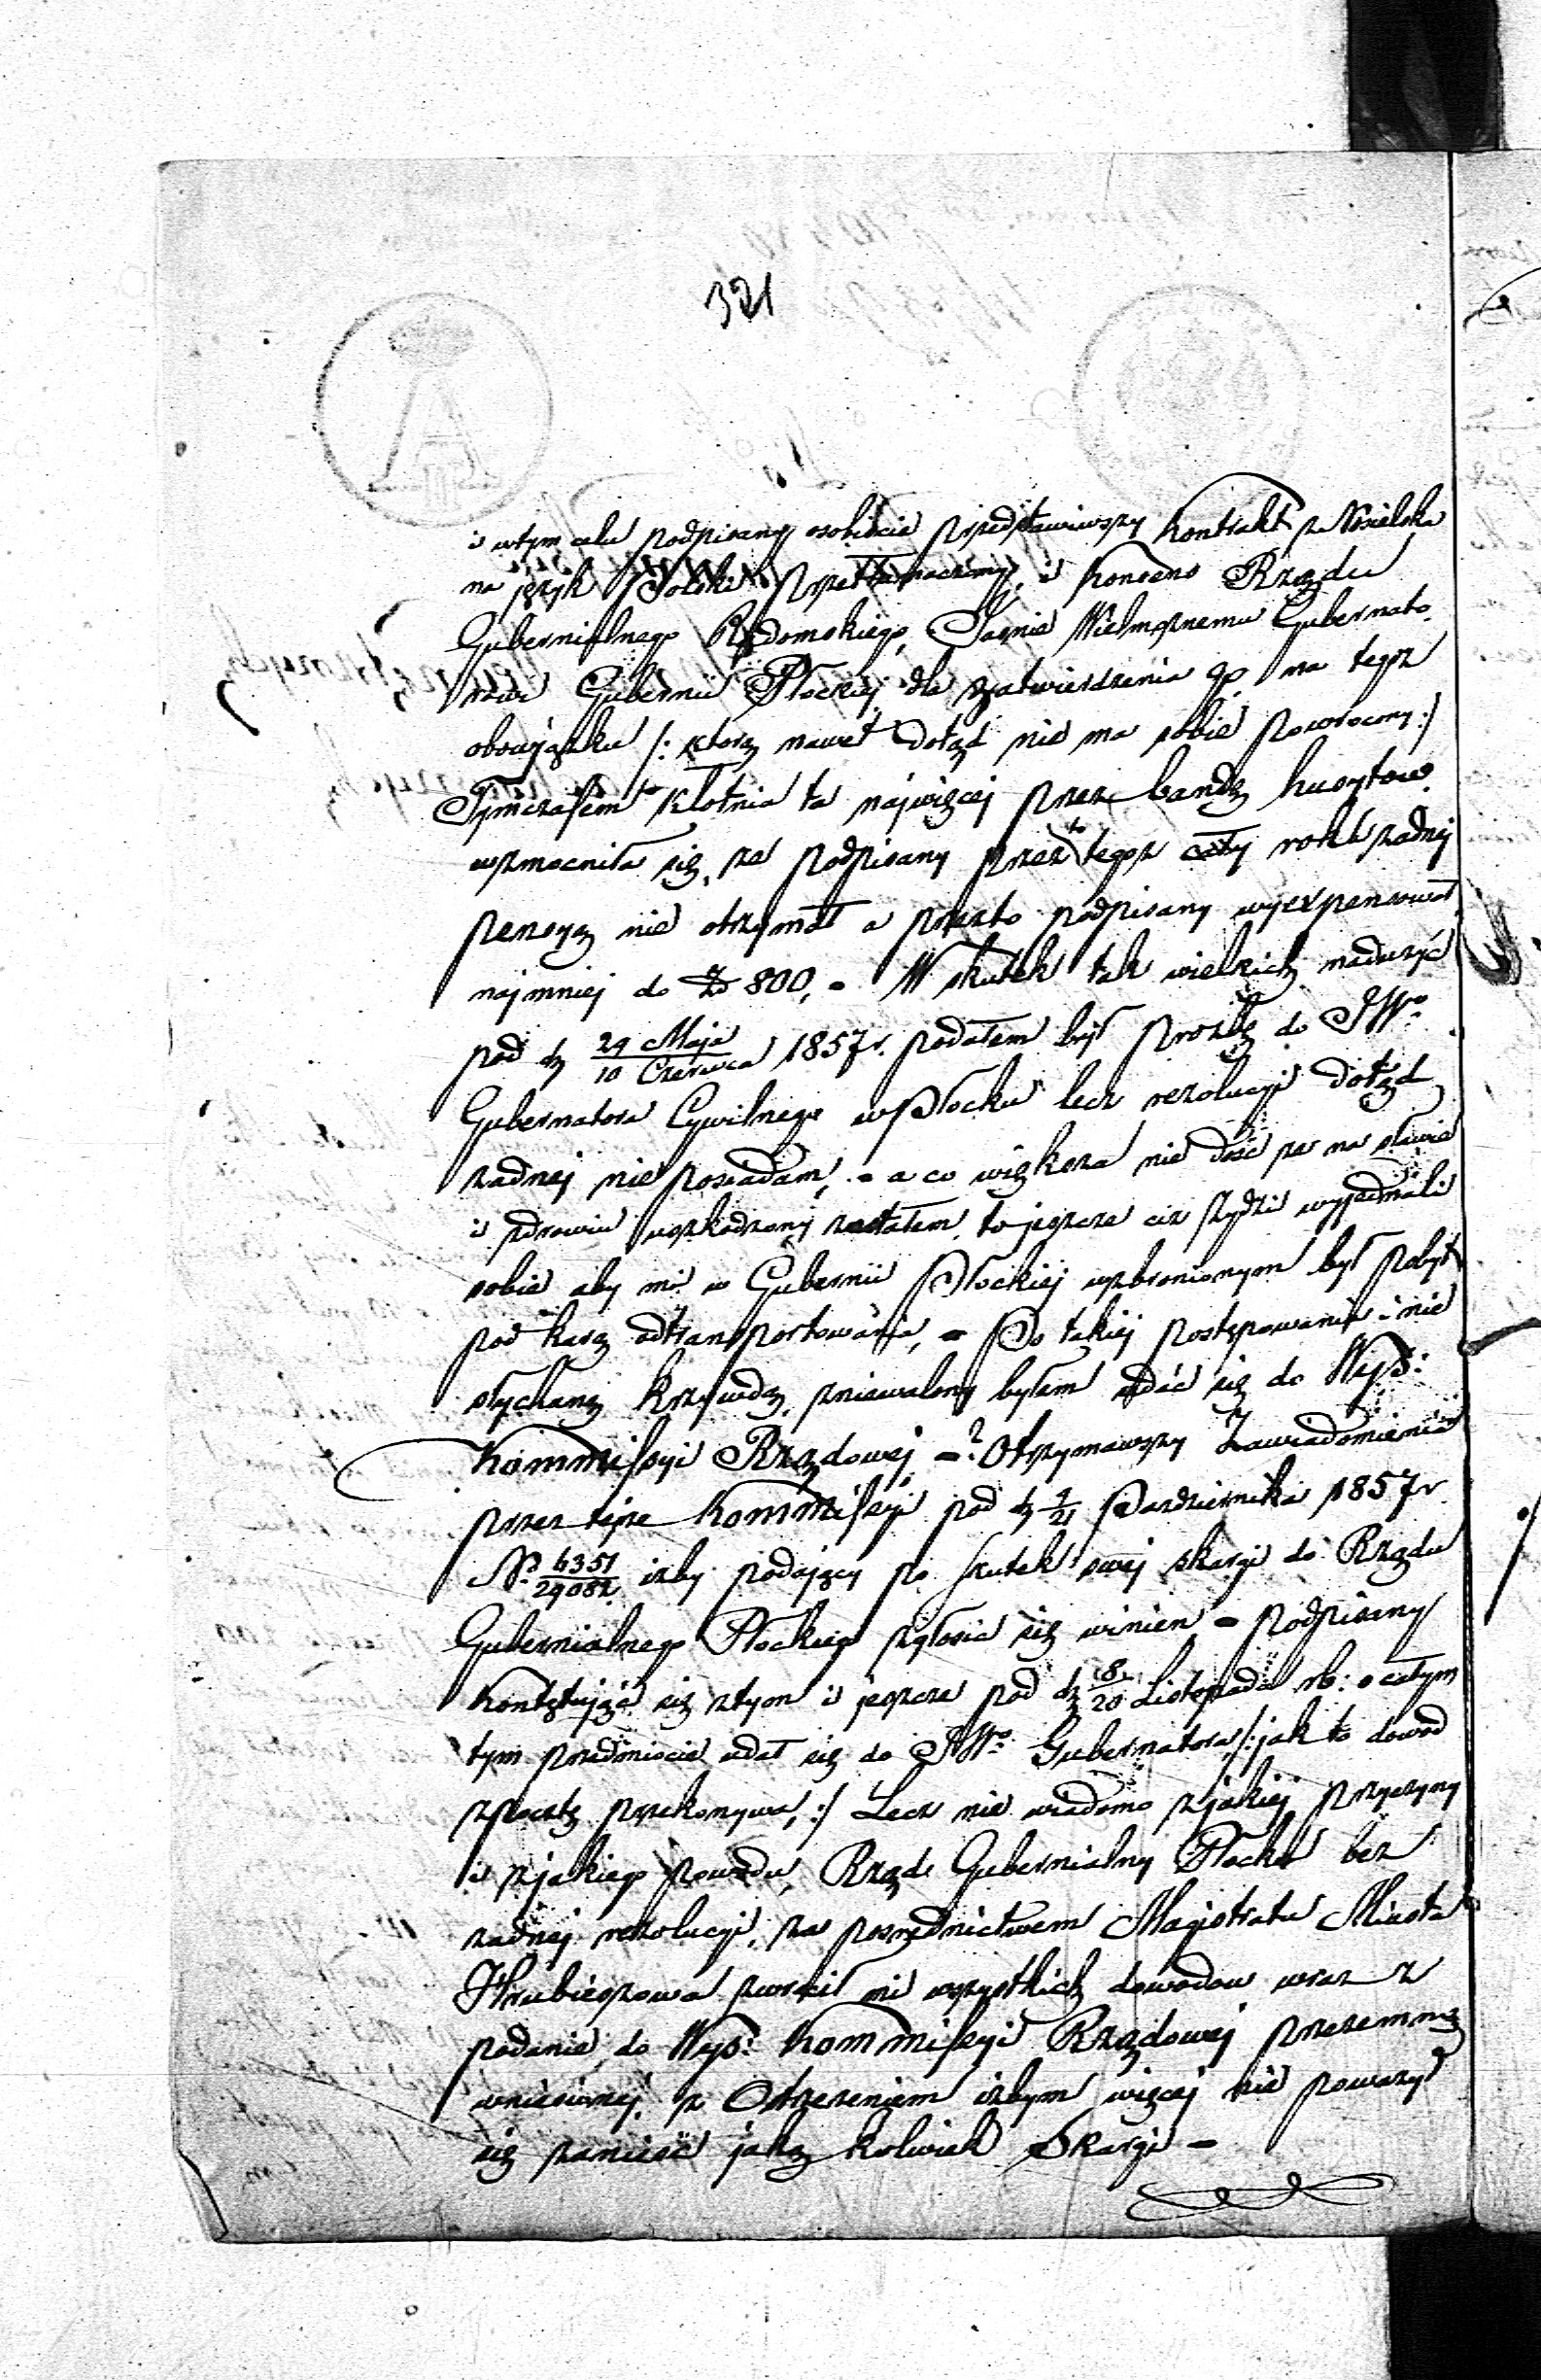 321
i wtym celu podpisany osobiście przedstawiwszy Kontrakt z Nosielska
na język Polski przetłumaczony, i Konsens Rządu
Gubernialnego Radomskiego, Jaśnie Wielmożnemu Gubernato
rowi Gubernii Płockiej dla zatwierdzenia go na tegoż
obowiązku /: ktorą nawet dotąd nie ma sobie powrocony :/
Tymczasem kłotnia ta najwięcej przez bandę husytow
wzmocniła się, za podpisany przez to tegoż cały rokk żadnej
pensyą nie otrzymał a przeto podpisany wyexpensował
najmniej do Zł 800, = W skutek tak wielkich nadużyć
pod d. 29 Maja / 10 Czerwca 1857 r. podałem był prozbę do JWo
Gubernatora Cywilnego w Płocku lecz rezolucyi dotąd
żadnej nie posiadam, = a co większa nie dość za na sławie
i zdrowiu uszkodzony zostałem, to jeszcze ciż Żydzi wyjednali
sobie aby mi w Gubernii Płockiej wzbronionym był pobyt
pod karą odtransportowania, = Po takiej postępowania i nie
słychaną krzywdę, zniewalony byłem udać się do Wys:
Kommissyi Rządowej = Otrzymawszy Zawiadomienie
przez tejże Kommissyi pod d. 9/21 Pazdziernika 1857 r.
No 6351/29082 iżby podający po skutek swej skargi do Rządu
Gubernialnego Płockiego zgłosić się winien = podpisany
kontętując się ztym i jeszcze pod d. 8/20 Listopada rb: o całym
tym przedmiocie udał się do JWo Gubernatora /: jak to dowod
z pocztę przekonywa, :/ Lecz nie wiadomo z jakiej przyczyny
i z jakiego powodu, Rząd Gubernialny Płocki bez
żadnej rezolucyi, za pośrednictwem Magistratu Miasta
Hrubieszowa zwrocił mi wszystkich dowodow wraz z
podanie, do Wys: Kommissyi Rządowej przezemnę
wniesionej, z Ostrzeżeniem iżbym więcej nie poważył
się zanieść jaką kolwiek Skargi =